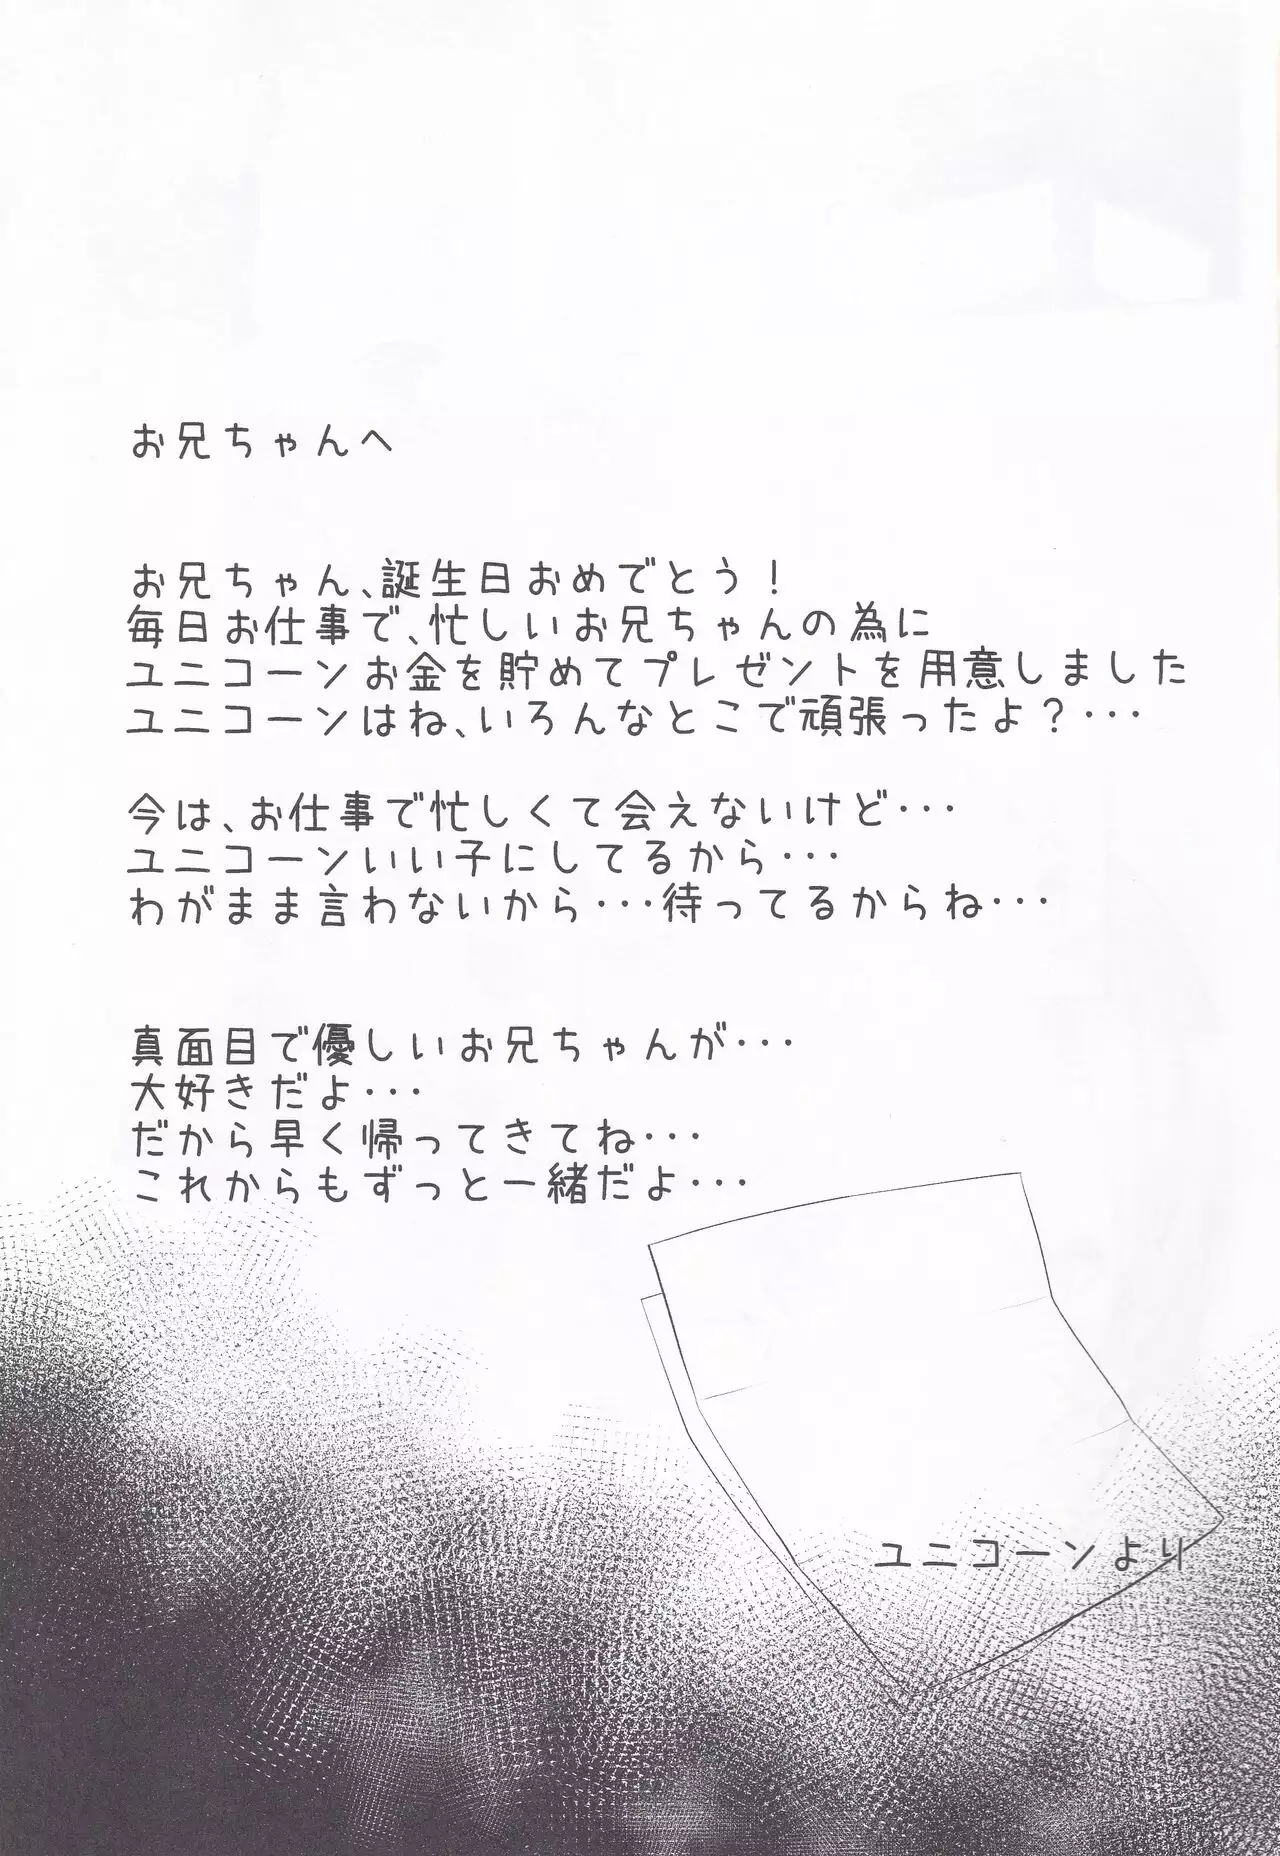 お兄ちゃんへ
お兄ちゃん、誕生日おめでとう！
毎日お仕事で、忙しいお兄ちゃんの為に
ユニコーンお金を貯めてプレゼントを用意しました
ユニコーンはね、いろんなとこで頑張ったよ？・・・
今は、お仕事で忙しくて会えないけど・・・
ユニコーンいい子にしてるから・・・
わがまま言わないから・・・待ってるからね・・・
真面目で優しいお兄ちゃんが・・・
大好きだよ・・・
だから早く帰ってきてね・・・
これからもずっと一緒だよ・・・
ユニコーンより